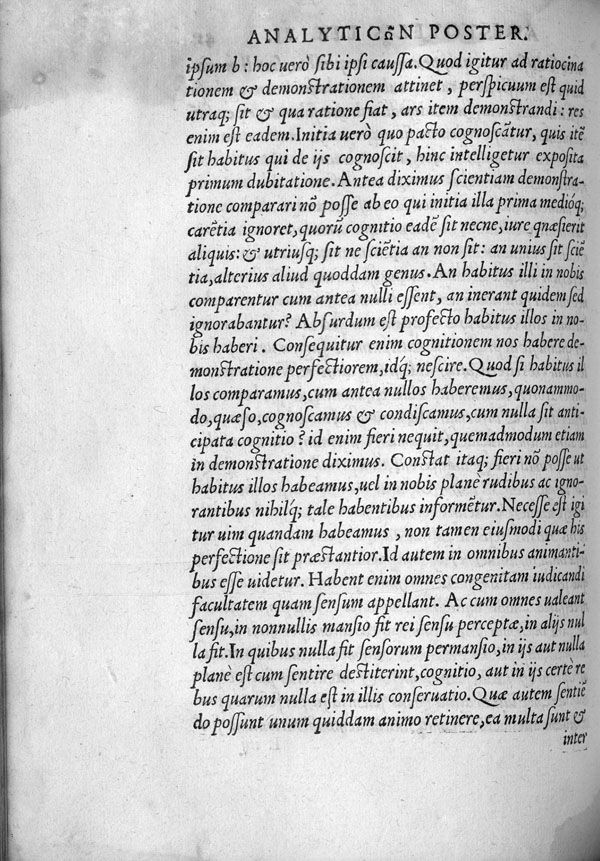 ANALYTICῶN POSTER.
ipsum b: hoc uerò sibi ipsi caussa. Quod igitur ad ratiocina
tionem & demonstrationem attinet, perspicuum est quid
utraq; sit & qua ratione fiat, ars item demonstrandi: res
enim est eadem. Initia uerò quo pacto cognoscãtur, quis itẽ
sit habitus qui de ijs cognoscit, hinc intelligetur exposita
primum dubitatione. Antea diximus scientiam demonstra-
tione comparari nõ posse ab eo qui initia illa prima medióq;
carẽtia ignoret, quorũ cognitio eadẽ sit necne, iure quæsierit
aliquis: & utriusq; sit ne sciẽtia an non sit: an unius sit sciẽ
tia, alterius aliud quoddam genus. An habitus illi in nobis
comparentur cum antea nulli essent, an inerant quidem sed
ignorabantur? Absurdum est profecto habitus illos in no-
bis haberi. Consequitur enim cognitionem nos habere de-
monstratione perfectiorem, idq́; nescire. Quod si habitus il
los comparamus, cum antea nullos haberemus, quonammo-
do, quæso, cognoscamus & condiscamus, cum nulla sit anti-
cipata cognitio? id enim fieri nequit, quemadmodum etiam
in demonstratione diximus. Constat itaq; fieri nõ posse ut
habitus illos habeamus, uel in nobis planè rudibus ac igno-
rantibus nihilq́; tale habentibus informẽtur. Necesse est igi
tur uim quandam habeamus, non tamen eiusmodi quæ his
perfectione sit præstantior. Id autem in omnibus animanti-
bus esse uidetur. Habent enim omnes congenitam iudicandi
facultatem quam sensum appellant. Ac cum omnes ualeant
sensu, in nonnullis mansio fit rei sensu perceptæ, in alijs nul
la fit. In quibus nulla fit sensorum permansio, in ijs aut nulla
planè est cum sentire destiterint, cognitio, aut in ijs certè re
bus quarum nulla est in illis conseruatio. Quæ autem sentiẽ
do possunt unum quiddam animo retinere, ea multa sunt &
inter